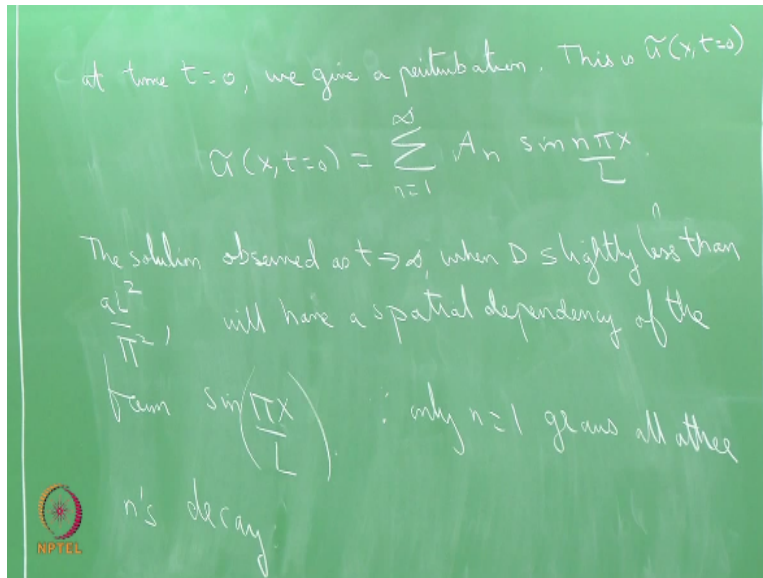 at time t=0, we give a perturbation. This is ũ(x,t=0)
ũ(x,t=0) = ∞ Σ n=1 An sin nπx/L.
The solution observed as t→∞, when D slightly less than
aL²/π², will have a spatial dependency of the
form sin(πx/L). ∵ only n=1 grows all other
n's decay
NPTEL